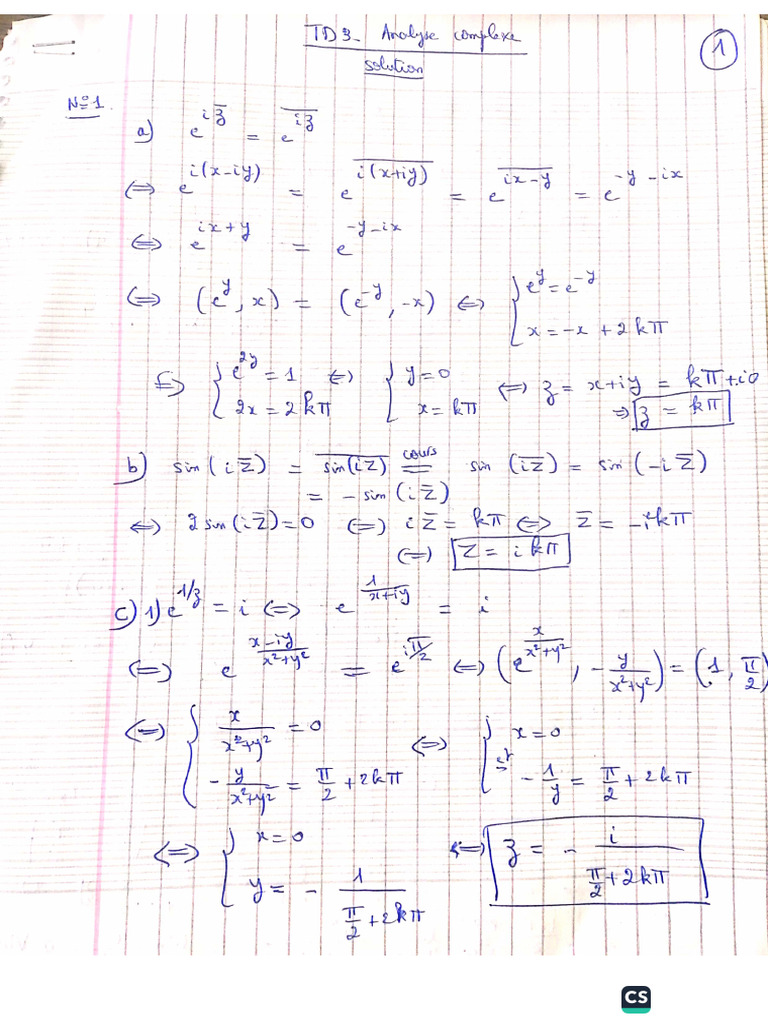 TD3_ Analyse complexe
solution
①
N°1
a) e^{i z̄} = e^{\overline{iz}}
⇔ e^{i(x-iy)} = e^{\overline{i(x+iy)}} = e^{\overline{ix-y}} = e^{-y-ix}
⇔ e^{ix+y} = e^{-y-ix}
⇔ (e^y, x) = (e^{-y}, -x) ⇔ { e^y = e^{-y} ; x = -x + 2kπ
⇔ { e^{2y} = 1 ; 2x = 2kπ ⇔ { y = 0 ; x = kπ ⇔ z = x+iy = kπ+i0
⇒ z = kπ
b) sin(i z̄) = \overline{sin(iz)} \overset{cours}{=} sin(\overline{iz}) = sin(-i z̄)
= -sin(i z̄)
⇔ 2 sin(i z̄) = 0 ⇔ i z̄ = kπ ⇔ z̄ = -ikπ
⇔ z = ikπ
c) 1) e^{1/z} = i ⇔ e^{\frac{1}{x+iy}} = i
⇔ e^{\frac{x-iy}{x²+y²}} = e^{iπ/2} ⇔ (e^{\frac{x}{x²+y²}}, -\frac{y}{x²+y²}) = (1, \frac{π}{2})
⇔ { \frac{x}{x²+y²} = 0 ; -\frac{y}{x²+y²} = \frac{π}{2} + 2kπ ⇔ { x = 0 ; -\frac{1}{y} = \frac{π}{2} + 2kπ
⇔ { x = 0 ; y = -\frac{1}{\frac{π}{2} + 2kπ} ⇔ z = -\frac{i}{\frac{π}{2} + 2kπ}
CS